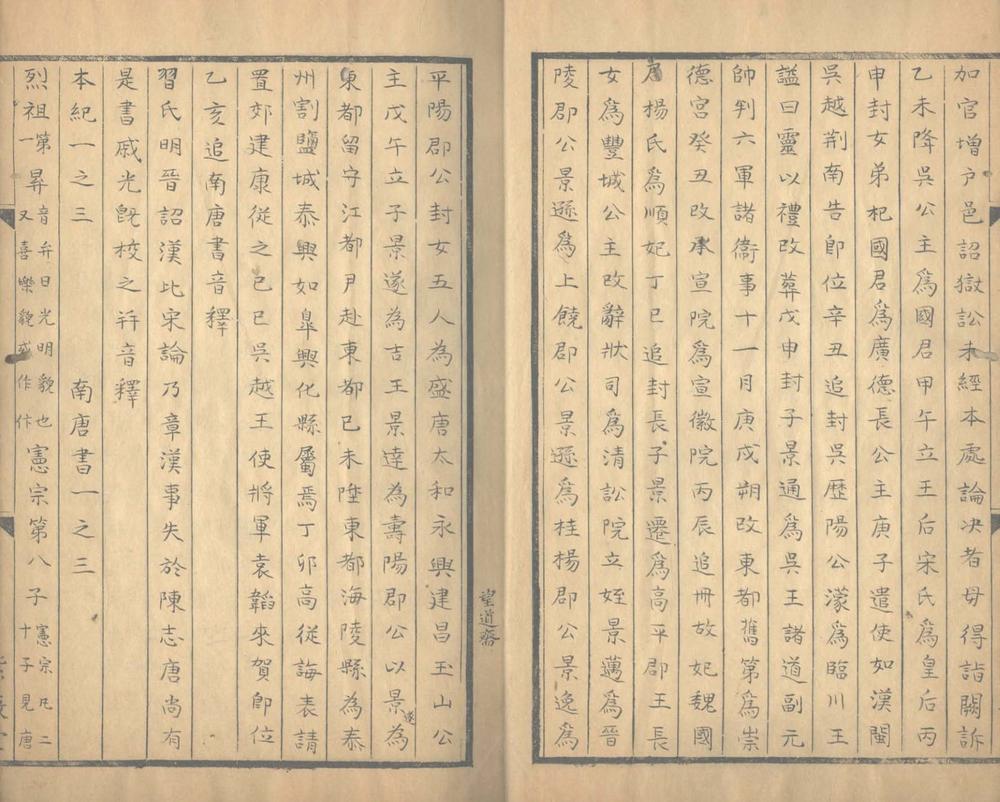 加官增户邑詔獄訟未經本處論决者毋得詣闕訴
乙未降吳公主爲國君甲午立王后宋氏爲皇后丙
申封女弟杞國君爲廣德長公主庚子遣使如漢閩
吳越荆南告即位辛丑追封吳歷陽公濛爲臨川王
謚曰靈以禮改葬戊申封子景通爲吳王諸道副元
帥判六軍諸衞事十一月庚戌朔改東都舊第爲崇
德宮癸丑改承宣院爲宣徽院丙辰追冊故妃魏國
君楊氏爲順妃丁巳追封長子景遷爲高平郡王長
女爲豐城公主改辭狀司爲清訟院立姪景邁爲晉
陵郡公景遜爲上饒郡公景遜爲桂楊郡公景逸爲
平陽郡公封女五人為盛唐太和永興建昌玉山公
主戊午立子景遂為吉王景達為壽陽郡公以景遂為
東都留守江都尹赴東都已未陞東都海陵縣為泰
州割鹽城泰興如臯興化縣屬焉丁卯高從誨表請
置郊建康從之已巳吳越王使將軍袁韜來賀即位
乙亥追南唐書音釋
習氏明晉詔漢比宋論乃章漢事失於陳志唐尚有
是書戚光既校之并音釋
本紀一之三 南唐書一之三
烈祖第一昇音弁日光明貌也又喜樂貌或作忭憲宗第八子憲宗凡二十子見唐
望道齋